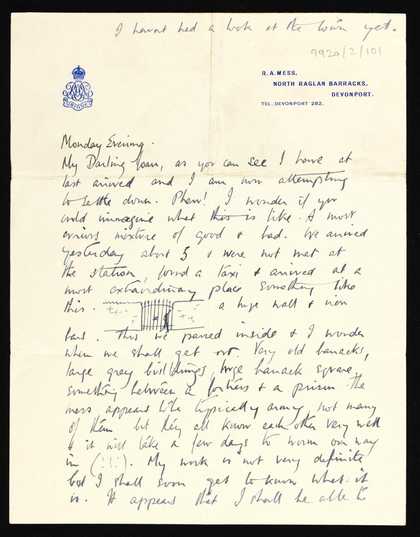 I havent had a look at the town yet.
9920/2/101
R.A. MESS,
NORTH RAGLAN BARRACKS,
DEVONPORT.
TEL. DEVONPORT 282.
Monday Evening.
My Darling Joan, as you can see I have at
last arrived and I am now attempting
to settle down. Phew! I wonder if you
could immagine what this is like. A most
curious mixture of good & bad. We arrived
yesterday about 5 & were not met at
the station, found a taxi & arrived at a
most extraordinary place something like
this. a huge wall & iron
bars. This we passed inside & I wonder
when we shall get out. Very old barracks,
large grey buildings, huge barrack square,
something between a fortress & a prison. The
mess appears like typically army, not many
of them but they all know each other very well
& it will take a few days to worm our way
in (:::). My work is not very definite
but I shall soon get to know what it
is. It appears that I shall be able to